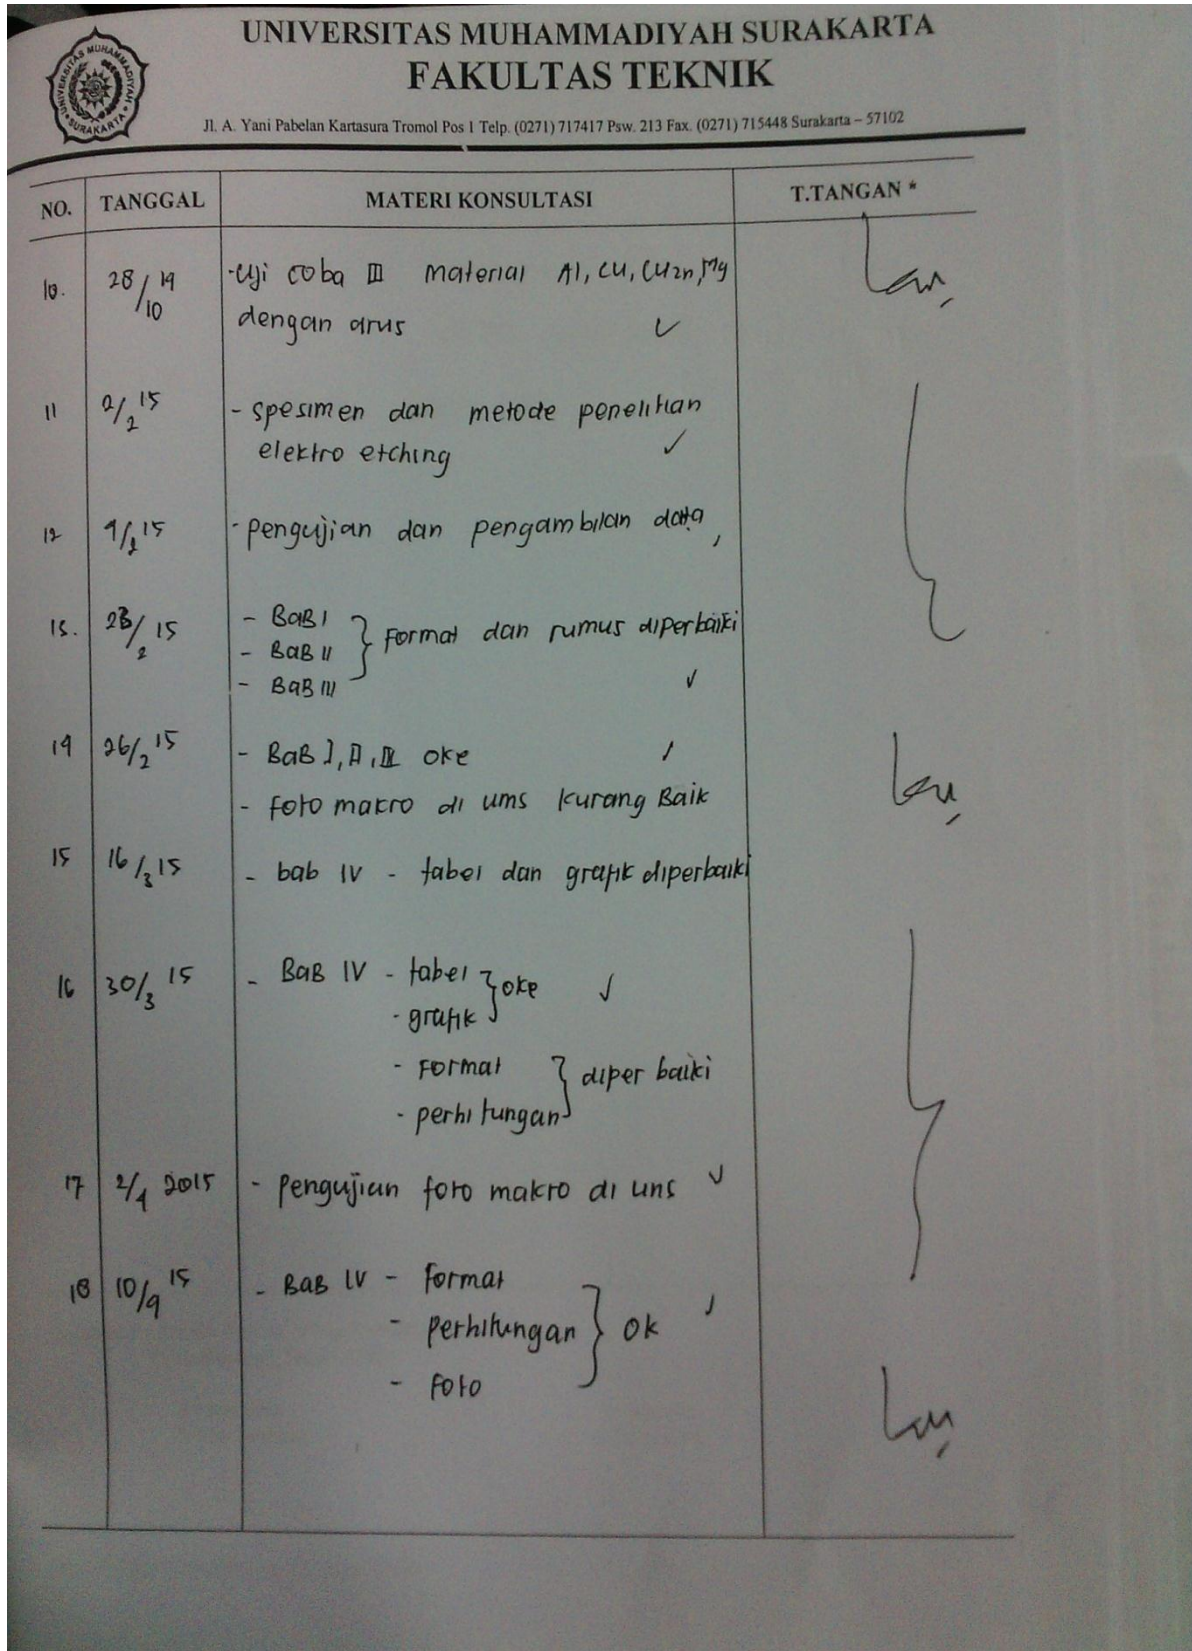 UNIVERSITAS MUHAMMADIYAH SURAKARTA
FAKULTAS TEKNIK
Jl. A. Yani Pabelan Kartasura Tromol Pos 1 Telp. (0271) 717417 Psw. 213 Fax. (0271) 715448 Surakarta – 57102
UNIVERSITAS MUHAMMADIYAH SURAKARTA
NO. TANGGAL MATERI KONSULTASI T.TANGAN *
10. 28/10 14 - Uji coba III material Al, Cu, Cuzn, Mg
dengan arus
11 2/2 15 - spesimen dan metode penelitian
elektro etching
12 9/2 15 - pengujian dan pengambilan data
13. 23/2 15 - BaB I
- BaB II } Format dan rumus diperbaiki
- BaB III
14 26/2 15 - BaB I, II, III oke
- foto makro di ums kurang Baik
15 16/3 15 - bab IV - tabel dan grafik diperbaiki
16 30/3 15 - BaB IV - tabel
- grafik } oke
- Format
- perhitungan } diper baiki
17 2/4 2015 - pengujian foto makro di uns
18 10/9 15 - BaB IV - Format
- perhitungan } ok
- Foto